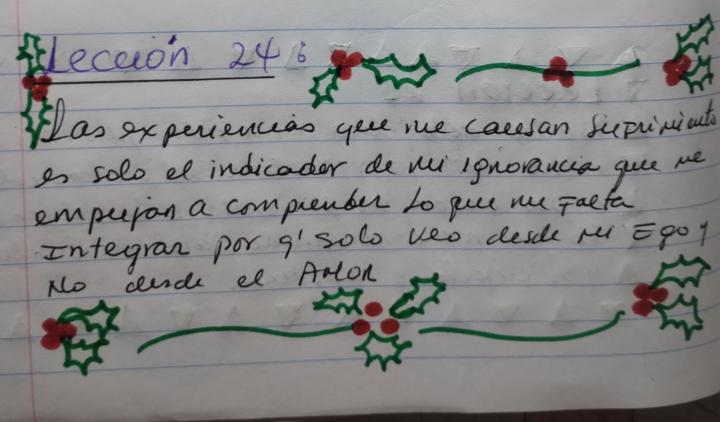 Lección 246
Las experiencias que me causan sufrimiento
es solo el indicador de mi ignorancia que me
empujan a comprender lo que me falta
Integrar por q' solo veo desde mi Ego y
No desde el Amor